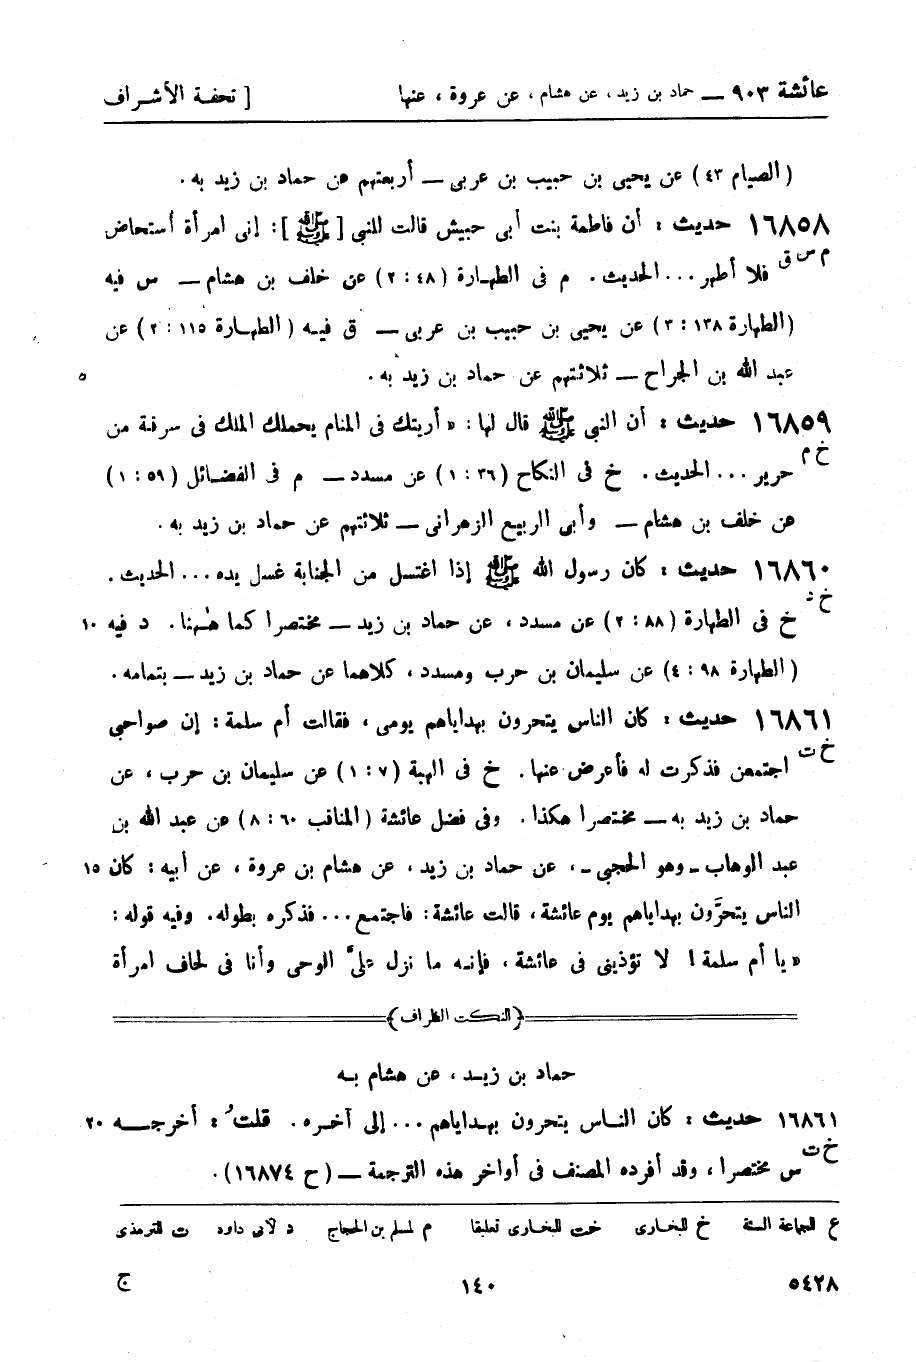 عائشة ٩٠٣ — حماد بن زيد، عن هشام، عن عروة، عنها [ تحفة الأشراف
(الصيام ٤٣) عن يحيى بن حبيب بن عربى — أربعتهم عن حماد بن زيد به.
١٦٨٥٨ حديث: أن فاطمة بنت أبى حبيش قالت للنبى [ﷺ]: إنى امرأة أستحاض
م س ق فلا أطهر ... الحديث. م فى الطهارة (٤٨ : ٢) عن خلف بن هشام — س فيه
(الطهارة ١٣٨ : ٣) عن يحيى بن حبيب بن عربى — ق فيه (الطهارة ١١٥ : ٢) عن
عبد الله بن الجراح — ثلاثتهم عن حماد بن زيد به. ٥
١٦٨٥٩ حديث: أن النبى ﷺ قال لها: «أريتك فى المنام يحملك الملك فى سرقة من
خ م حرير ... الحديث. خ فى النكاح (٣٦ : ١) عن مسدد — م فى الفضائل (٥٩ : ١)
عن خلف بن هشام — وأبى الربيع الزهرانى — ثلاثتهم عن حماد بن زيد به.
١٦٨٦٠ حديث: كان رسول الله ﷺ إذا اغتسل من الجنابة غسل يده ... الحديث.
خ د خ فى الطهارة (٨٨ : ٢) عن مسدد، عن حماد بن زيد — مختصرا كما هٰهنا. د فيه ١٠
(الطهارة ٩٨ : ٤) عن سليمان بن حرب ومسدد، كلاهما عن حماد بن زيد — بتمامه.
١٦٨٦١ حديث: كان الناس يتحرون بهداياهم يومى، فقالت أم سلمة: إن صواحبى
خ ت اجتمعن فذكرت له فأعرض عنها. خ فى الهبة (٧ : ١) عن سليمان بن حرب، عن
حماد بن زيد به — مختصرا هكذا. وفى فضل عائشة (المناقب ٦٠ : ٨) عن عبد الله بن
عبد الوهاب - وهو الحجبى -، عن حماد بن زيد، عن هشام بن عروة، عن أبيه: كان ١٥
الناس يتحرَّون بهداياهم يوم عائشة، قالت عائشة: فاجتمع ... فذكره بطوله. وفيه قوله:
«يا أم سلمة! لا تؤذينى فى عائشة، فإنه ما نزل علىَّ الوحى وأنا فى لحاف امرأة
(النكت الظراف)
حماد بن زيد، عن هشام به
١٦٨٦١ حديث: كان الناس يتحرون بهداياهم ... إلى آخره. قلتُ: أخرجه ٢٠
خ ت س مختصرا، وقد أفرده المصنف فى أواخر هذه الترجمة — (ح ١٦٨٧٤).
ع للجماعة الستة خ للبخارى خت للبخارى تعليقا م لمسلم بن الحجاج د لأبى داود ت للترمذى
٥٤٢٨ ١٤٠ ج